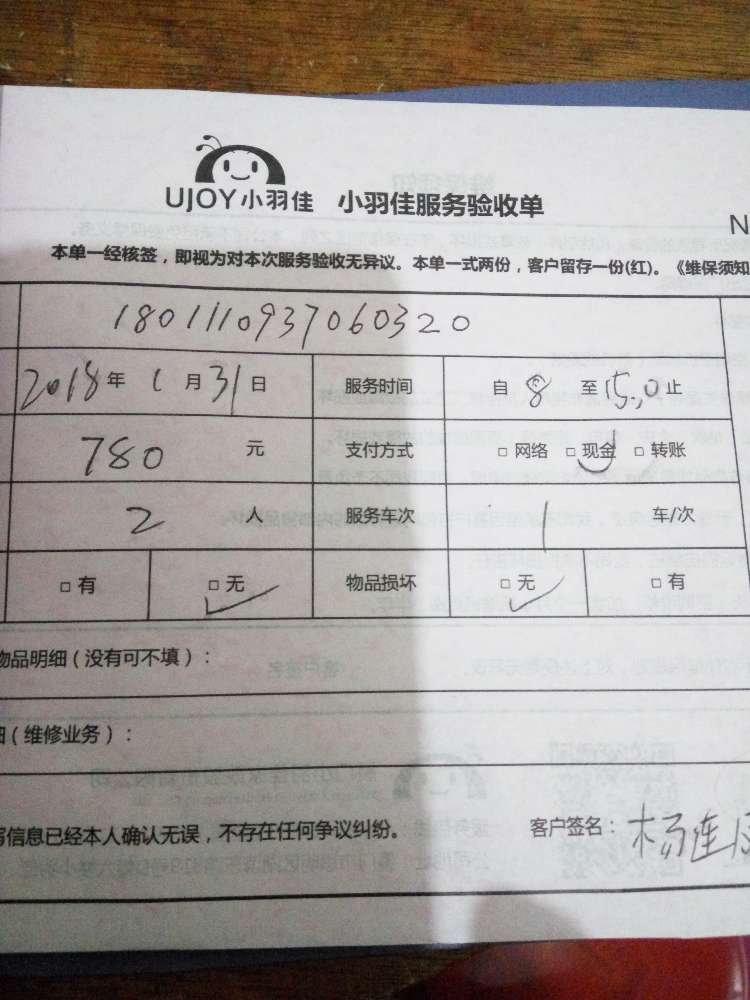 UJOY小羽佳 小羽佳服务验收单
N
本单一经核签，即视为对本次服务验收无异议。本单一式两份，客户留存一份(红)。《维保须知
1801110937060320
2018年1月31日 服务时间 自8至15.0止
780元 支付方式 □网络 □现金 □转账
2人 服务车次 1车/次
□有 □无 物品损坏 □无 □有
物品明细（没有可不填）：
（维修业务）：
信息已经本人确认无误，不存在任何争议纠纷。 客户签名：杨连